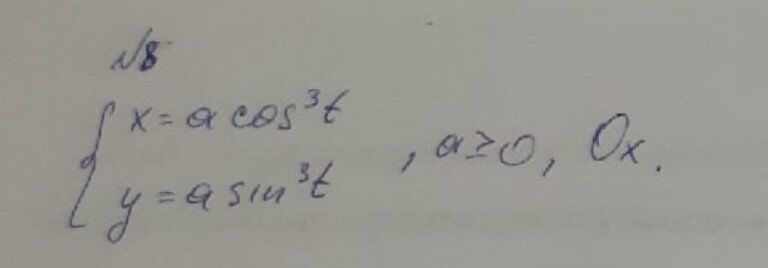 №8
{ x = a cos³t
y = a sin³t , a ≥ 0, Ox.